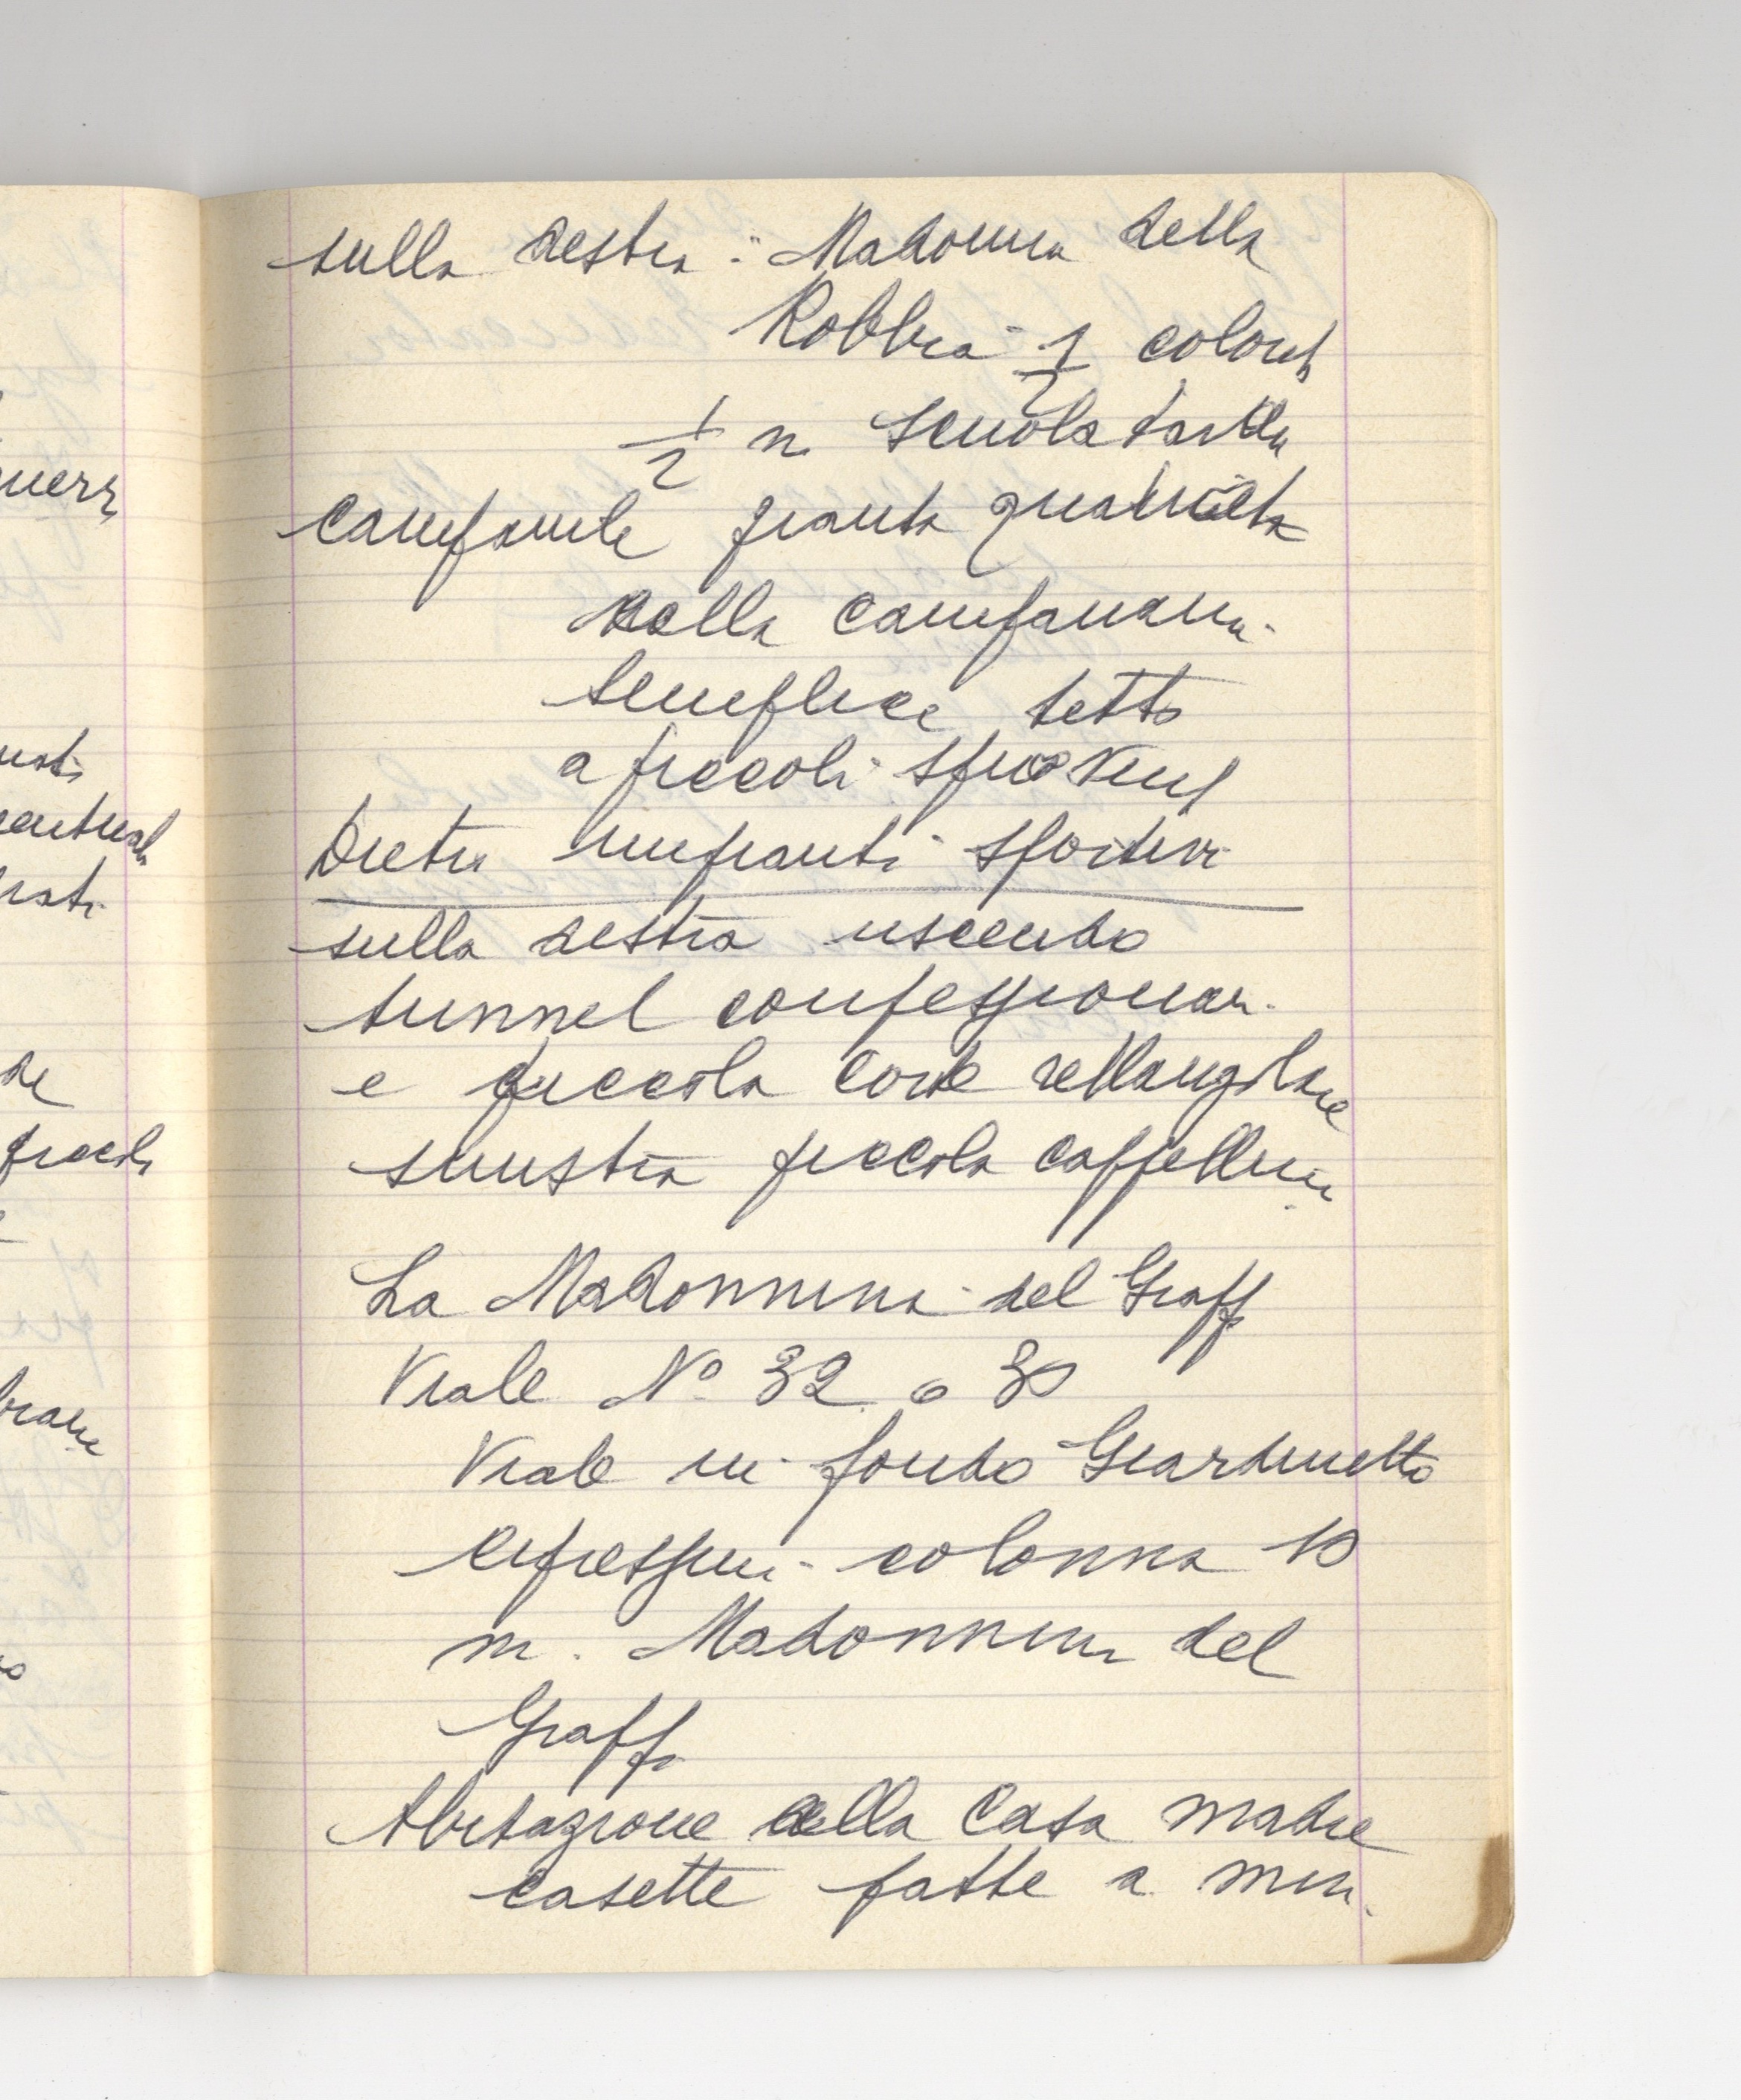 sulla destra: Madonna della
Robbia 1/2 colori
1/2 n scuola
campanile pianta quadrata
della campana
semplice tetto
a piccoli
Dietro impianti sportivi
sulla destra uscendo
tunnel confessionari
e piccola corte rettangolare
sinistra piccola cappellina
La Madonnina del Graffi
Viale N° 32 o 30
Viale in fondo Giardinetto
cipressini colonna 10
m. Madonnina del
Graffi
Abitazione della Casa madre
casette fatte a
uerr
usti
de
piccoli